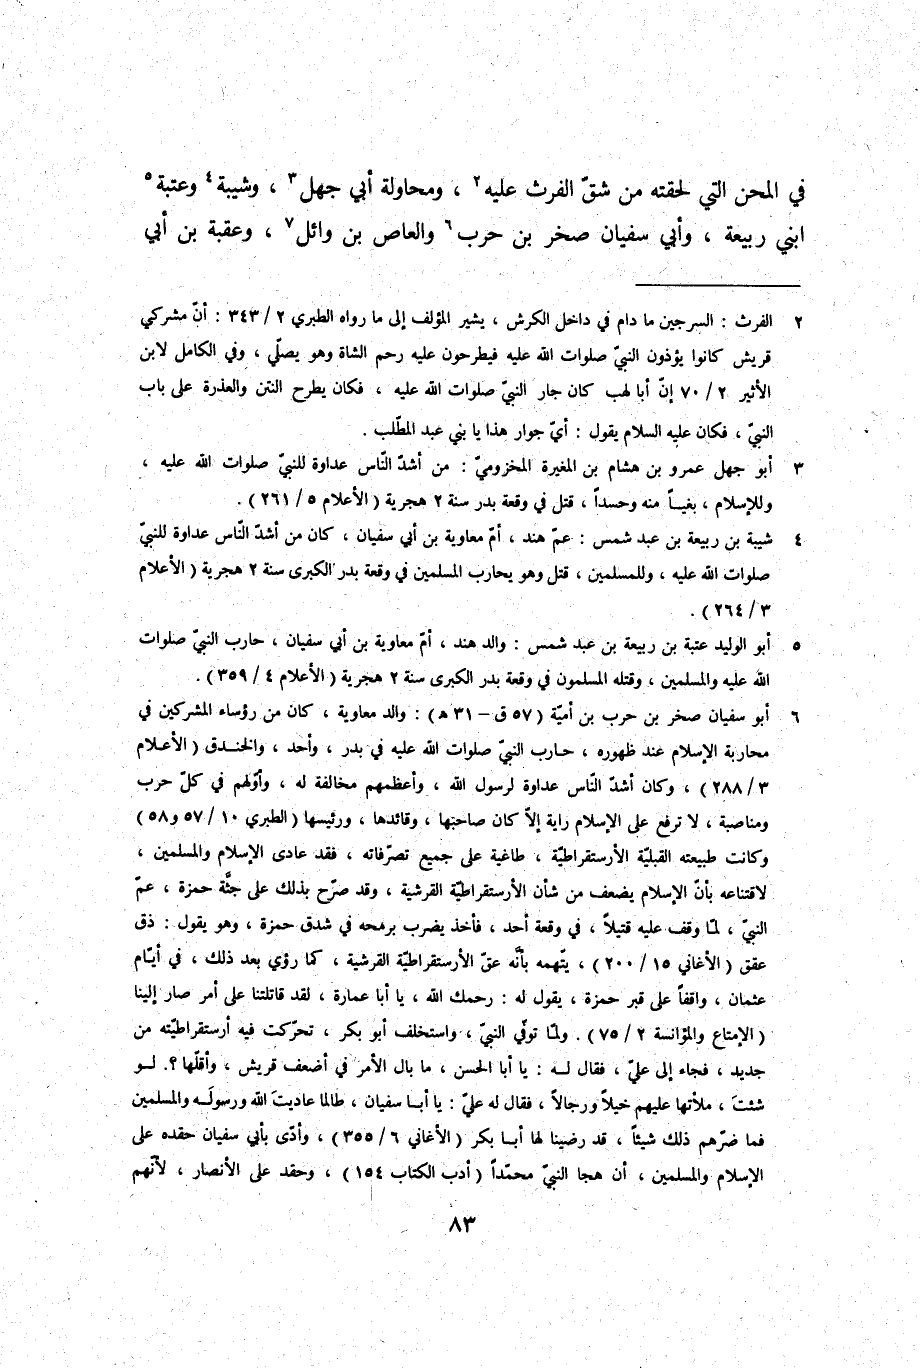 في المحن التي لحقته من شقّ الفرث عليه ٢ ، ومحاولة أبي جهل ٣ ، وشيبة ٤ وعتبة ٥
ابني ربيعة ، وأبي سفيان صخر بن حرب ٦ والعاص بن وائل ٧ ، وعقبة بن أبي
٢ الفرث : السرجين ما دام في داخل الكرش ، يشير المؤلف إلى ما رواه الطبري ٢ / ٣٤٣ : أنّ مشركي
قريش كانوا يؤذون النبيّ صلوات الله عليه فيطرحون عليه رحم الشاة وهو يصلّي ، وفي الكامل لابن
الأثير ٢ / ٧٠ إنّ أبا لهب كان جار النبيّ صلوات الله عليه ، فكان يطرح النتن والعذرة على باب
النبيّ ، فكان عليه السلام يقول : أيّ جوار هذا يا بني عبد المطّلب .
٣ أبو جهل عمرو بن هشام بن المغيرة المخزوميّ : من أشدّ النّاس عداوة للنبيّ صلوات الله عليه ،
وللإسلام ، بغيـاً منه وحسداً ، قتل في وقعة بدر سنة ٢ هجرية ( الأعلام ٥ / ٢٦١ ) .
٤ شيبة بن ربيعة بن عبد شمس : عمّ هند ، أمّ معاوية بن أبي سفيان ، كان من أشدّ النّاس عداوة للنبيّ
صلوات الله عليه ، وللمسلمين ، قتل وهو يحارب المسلمين في وقعة بدر الكبرى سنة ٢ هجرية ( الأعلام
٣ / ٢٦٤ ) .
٥ أبو الوليد عتبة بن ربيعة بن عبد شمس : والد هند ، أمّ معاوية بن أبي سفيان ، حارب النبيّ صلوات
الله عليه والمسلمين ، وقتله المسلمون في وقعة بدر الكبرى سنة ٢ هجرية ( الأعلام ٤ / ٣٥٩ ) .
٦ أبو سفيان صخر بن حرب بن أميّة ( ٥٧ ق – ٣١ ه ) : والد معاوية ، كان من رؤساء المشركين في
محاربة الإسلام عند ظهوره ، حـارب النبيّ صلوات الله عليه في بدر ، وأحد ، والخنـدق ( الأعـلام
٣ / ٢٨٨ ) ، وكان أشدّ النّاس عداوة لرسول الله ، وأعظمهم مخالفة له ، وأوّلهم في كلّ حرب
ومناصبة ، لا ترفع على الإسلام راية إلاّ كان صاحبها ، وقائدها ، ورئيسها ( الطبري ١٠ / ٥٧ و ٥٨ )
وكانت طبيعته القبليّة الأرستقراطيّة ، طاغية على جميع تصرّفاته ، فقد عادى الإسلام والمسلمين ،
لاقتناعه بأنّ الإسلام يضعف من شأن الأرستقراطيّة القرشية ، وقد صرّح بذلك على جثّة حمزة ، عمّ
النبيّ ، لمّا وقف عليه قتيلاً ، في وقعة أحد ، فأخذ يضرب برمحه في شدق حمزة ، وهو يقول : ذق
عقق ( الأغاني ١٥ / ٢٠٠ ) ، يتّهمه بأنّه عقّ الأرستقراطيّة القرشية ، كما رؤي بعد ذلك ، في أيّـام
عثمان ، واقفاً على قبر حمزة ، يقول له : رحمك الله ، يا أبا عمارة ، لقد قاتلتنا على أمر صار إلينا
( الإمتاع والمؤانسة ٢ / ٧٥ ) . ولمّا توفّي النبيّ ، واستخلف أبو بكر ، تحرّكت فيه أرستقراطيّته من
جديد ، فجاء إلى عليّ ، فقال لـه : يا أبا الحسن ، ما بال الأمر في أضعف قريش ، وأقلّها ؟. لـو
شئتَ ، ملأتها عليهم خيلاً ورجالاً ، فقال له عليّ : يا أبـا سفيان ، طالما عاديتَ الله ورسولَـه والمسلمين
فما ضرّهم ذلك شيئاً ، قد رضينا لها أبـا بكر ( الأغاني ٦ / ٣٥٥ ) ، وأدّى بأبي سفيان حقده على
الإسلام والمسلمين ، أن هجا النبيّ محمّداً ( أدب الكتاب ١٥٤ ) ، وحقد على الأنصار ، لأنّهم
٨٣